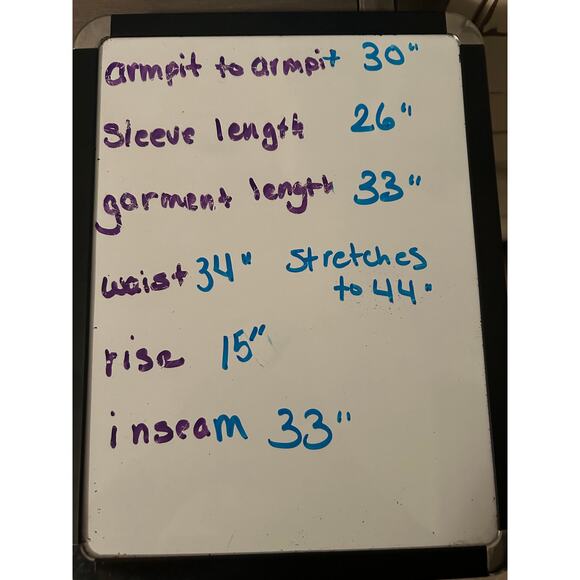 armpit to armpit 30"
sleeve length 26"
garment length 33"
waist 34" stretches
to 44"
rise 15"
inseam 33"